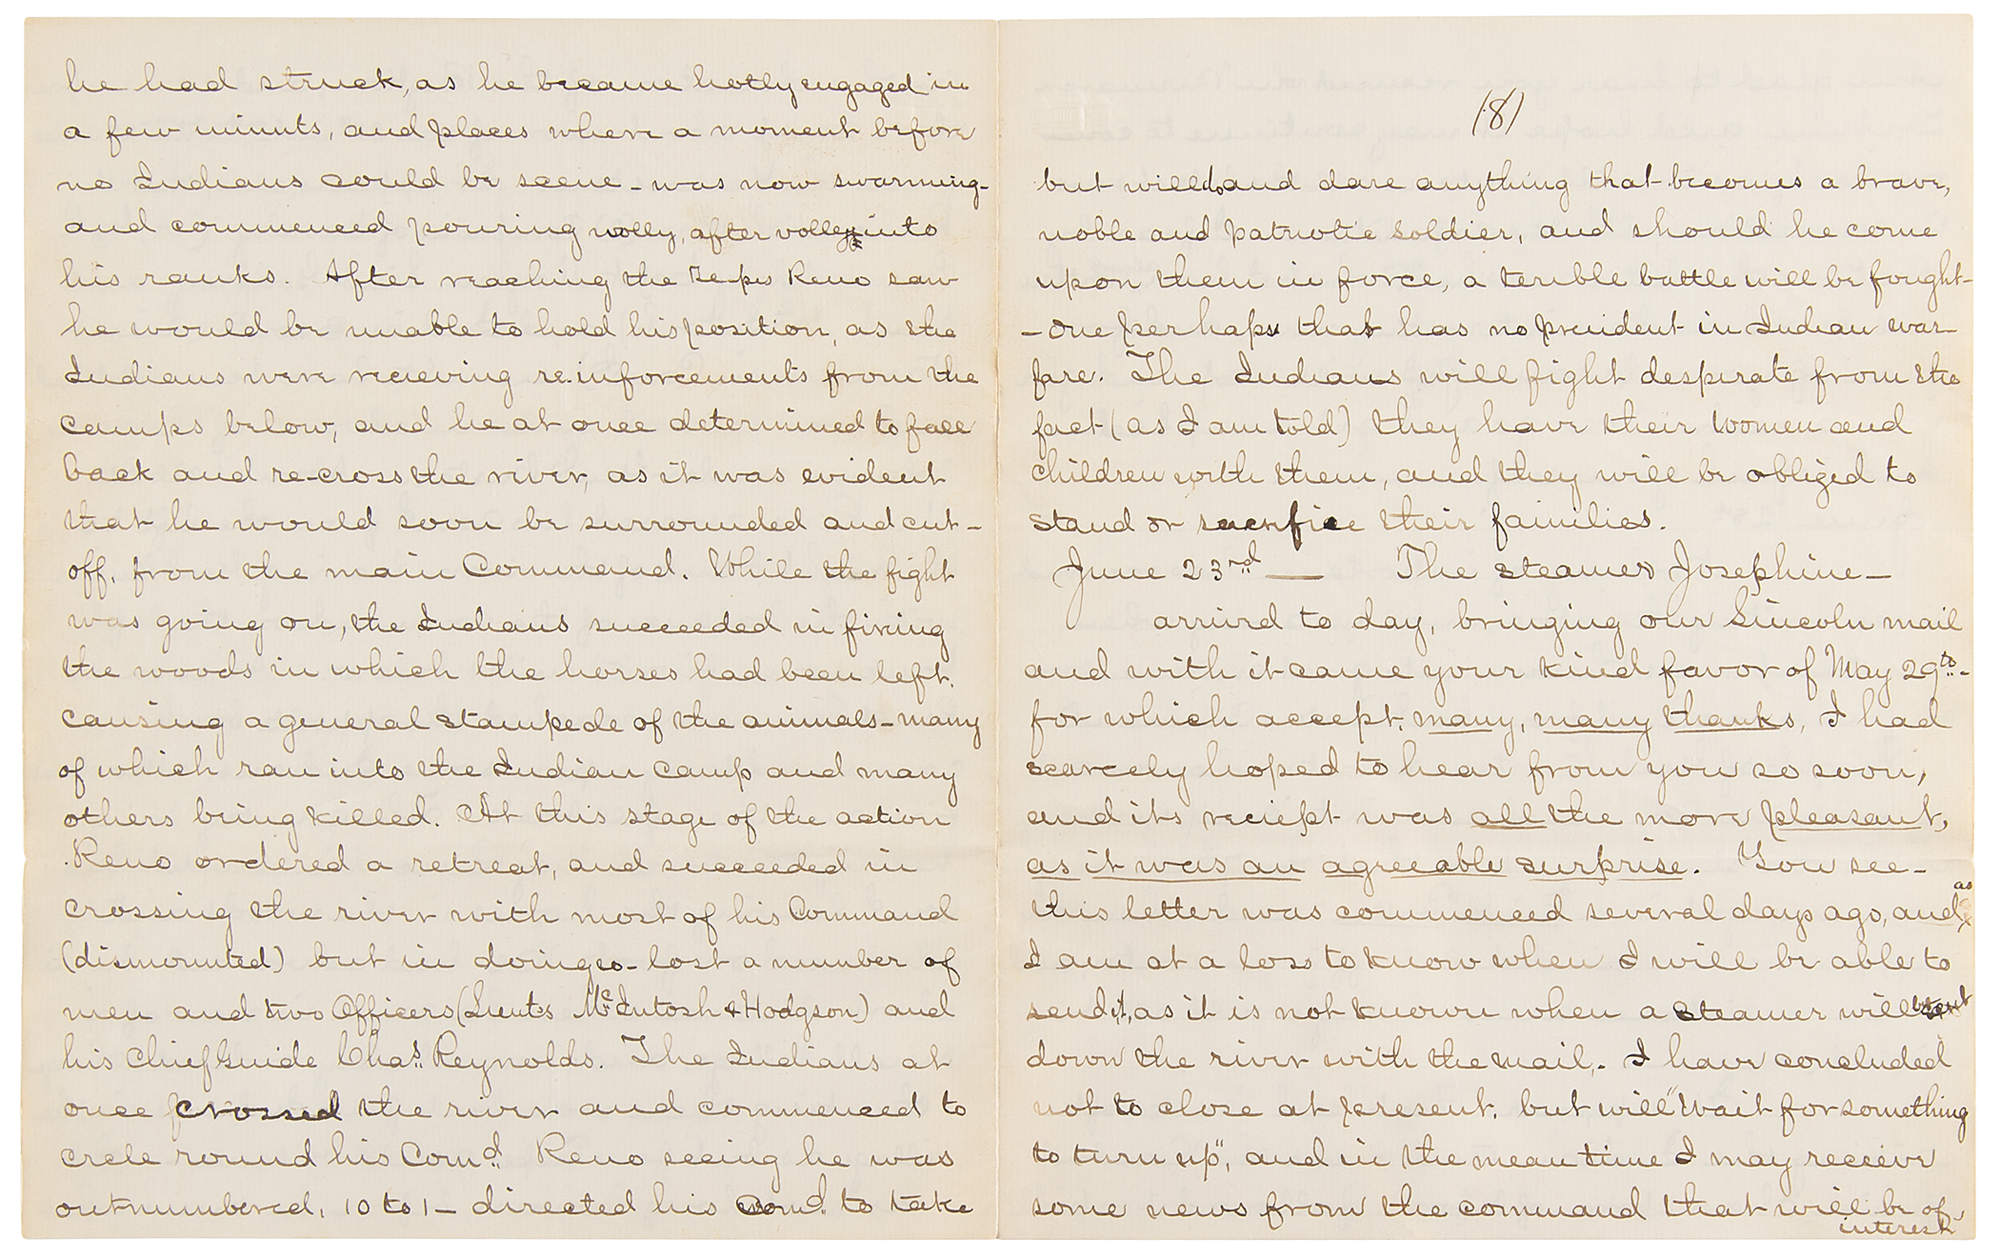 he had struck, as he became hotly engaged in
a few minuts, and places where a moment before
no Indians could be scene - was now swarming -
and commenced pouring volly, after volley into
his ranks. After reaching the Tepes Reno saw
he would be unable to hold his position, as the
Indians were recieving re-inforcements from the
camps below, and he at once determined to fall
back and re-cross the river, as it was evident
that he would soon be surrounded and cut -
off, from the main Command. While the fight
was going on, the Indians succeeded in firing
the woods in which the horses had been left,
causing a general stampede of the animals - many
of which ran into the Indian camp and many
others being killed. At this stage of the action
Reno ordered a retreat, and succeeded in
crossing the river with most of his Command
(dismounted) but in doing so - lost a number of
men and two Officers (Lieuts McIntosh & Hodgson) and
his Chief Guide Chas. Reynolds. The Indians at
once crossed the river and commenced to
crele round his Comd. Reno seeing he was
outnumbered, 10 to 1 - directed his Comd. to take
(8)
but will do and dare anything that becomes a brave,
noble and patriotic soldier, and should he come
upon them in force, a terible battle will be fought -
- one perhaps that has no president in Indian war-
fare. The Indians will fight desperate from the
fact (as I am told) they have their women and
children with them, and they will be obliged to
stand or sacrifice their families.
June 23rd — The steamer Josephine -
arrived to day, bringing our Lincoln mail
and with it came your kind favor of May 29th -
for which accept, many, many thanks, I had
scarcely hoped to hear from you so soon,
and its reciept was all the more pleasant,
as it was an agreeable surprise. You see -
this letter was commenced several days ago, and as
I am at a loss to know when I will be able to
send it, as it is not known when a steamer will be sent
down the river with the mail,. I have concluded
not to close at present, but will "wait for something
to turn up", and in the mean time I may recieve
some news from the command that will be of
interest